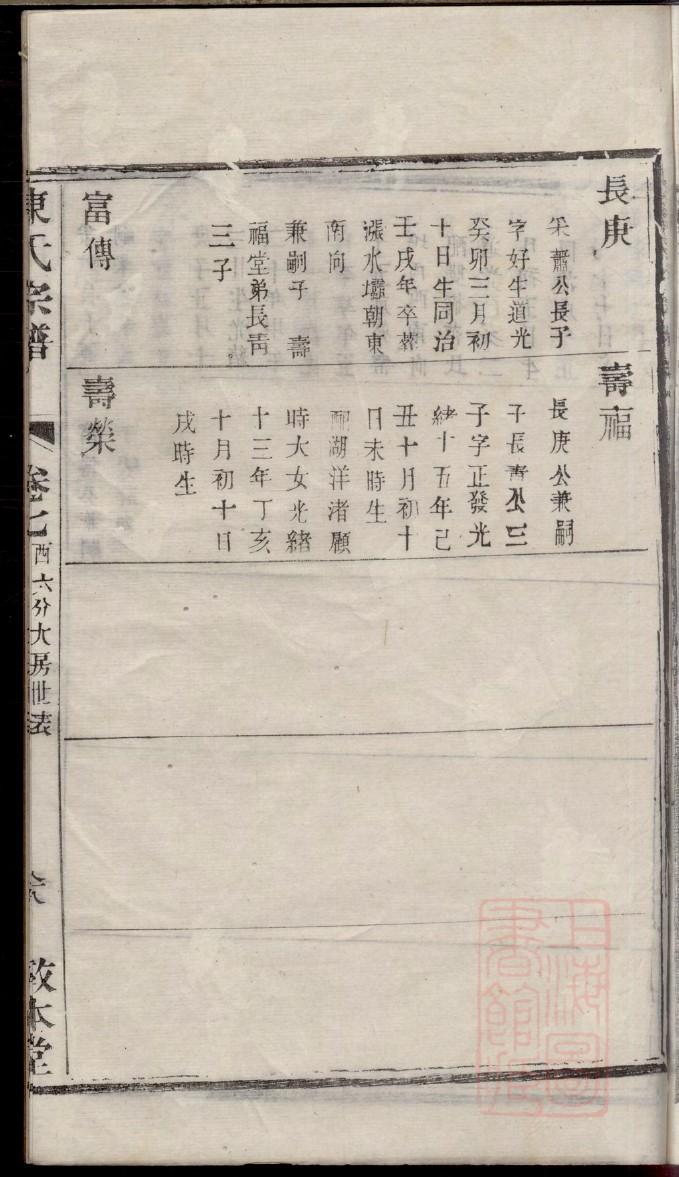 長庚
采蕭公長子
字好生道光
癸卯三月初
十日生同治
壬戌年卒葬
漲水壩朝東
南向
兼嗣子　壽
福堂弟長靑
三子
富傳
壽福
長庚公兼嗣
子長靑公三
子字正發光
緒十五年己
丑十月初十
日未時生
配湖洋渚願
時大女光緒
十三年丁亥
十月初十日
戌時生
壽榮
陳氏宗譜
卷七
西六分大房世表
六
敦本堂
上海圖
書館藏